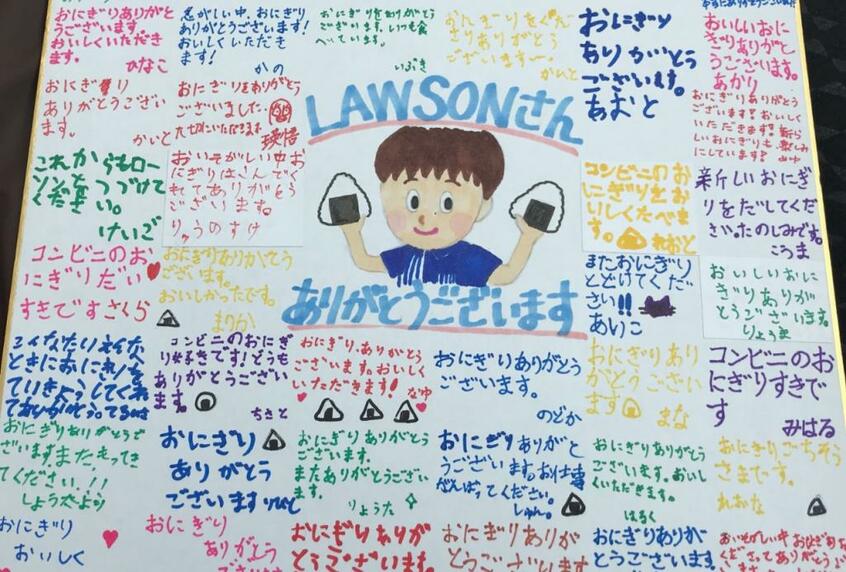 おにぎりありがと
うございます。
おいしくいただき
ます。
ひなこ
忙しい中、おにぎり
ありがとうございます!
おいしくいただき
ます!
かの
おにぎりをありがとう
ございます。いつも食
べています。
いぶき
おにぎりをくだ
さりありがとう
ございます
おにぎり
ありがとう
ございます。
あおと
おいしいおに
ぎりありがと
うございます。
あかり
おにぎり
ありがとうござい
ます。
かいと
おにぎりをありがとう
ございました。
おにぎりありがとう
ございます!おいしく
いただきます!新ら
しいおにぎりも楽しみ
にしています!
LAWSONさん
これからもロー
ソンをつづけて
ください。
けいご
おいそがしい中お
にぎりはさんでく
れてありがとう
ございます。
りゅうのすけ
コンビニのお
にぎりを
おいしくたべま
す。
れおと
新しいおにぎ
りをだしてくだ
さい。たのしみです。
ころま
コンビニのお
にぎりだい
すきですさくら
おにぎりありがとう
ございます。
おいしかったです。
まりか
ありがとうございます
またおにぎり
とどけてくだ
さい!!
ありこ
おいしいおに
ぎりありが
とうございます。
りょうま
こんなたいへんな
ときにおにぎりを
ていきょうしてくれ
てありがとう
コンビニのおにぎ
り好きです!どうも
ありがとうござい
ます。
ちさと
おにぎり、ありがとう
ございます。おいしく
いただきます!
なゆ
おにぎりありがとう
ございます。
のどか
おにぎりあり
がとうござい
ます
まな
コンビニのお
にぎりすきで
す
みはる
おにぎりありがとうご
ざいます。またもってき
てください!!
しょう太より
おにぎり
ありがとう
ございます
りひと
おにぎりありがとう
ございます。
またありがとうござい
ます。
りょうた
おにぎりありがと
うございます。お仕事
がんばってください。
しゅん。
おにぎりありがとう
ございます。おいし
くいただきます。
はるく
おにぎりごちそう
さまです。
れおな
おにぎり
おいしく
おにぎり
ありがとう
おにぎりありが
とうございます。
おにぎりありが
とうございます
おにぎりありが
とうございます。
おいそがしい中おにぎりを